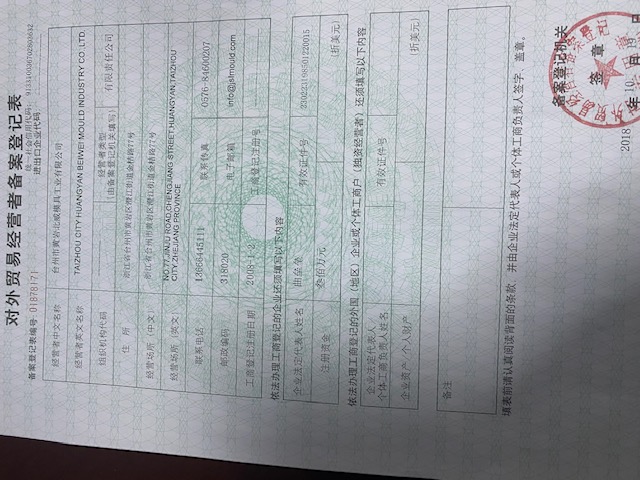 对外贸易经营者备案登记表
备案登记表编号: 01878171
统一社会信用代码:
进出口企业代码:
经营者中文名称 台州市黄岩北威模具工业有限公司
经营者英文名称 TAIZHOU CITY HUANGYAN BEIWEI MOULD INDUSTRY CO.,LTD.
组织机构代码 经营者类型 (由备案登记机关填写) 有限责任公司
住 所 浙江省台州市黄岩区澄江街道金桔路77号
经营场所（中文） 浙江省台州市黄岩区澄江街道金桔路77号
经营场所（英文） NO.77,JINJU ROAD,CHENGJIANG STREET,HUANGYAN,TAIZHOU
CITY ZHEJIANG PROVINCE
联系电话 联系传真 0576-84600207
邮政编码 318020 电子邮箱 info@jslmould.com
工商登记注册日期 工商登记注册号
依法办理工商登记的企业还须填写以下内容
企业法定代表人姓名 有效证件号
注册资金 叁佰万元 (折美元)
依法办理工商登记的外国（地区）企业或个体工商户（独资经营者）还须填写以下内容
企业法定代表人
个体工商负责人姓名 有效证件号
企业资产/个人财产 (折美元)
备注
填表前请认真阅读背面的条款，并由企业法定代表人或个体工商负责人签字、盖章。
备案登记机关
签 章
2018 年 10 月 19 日